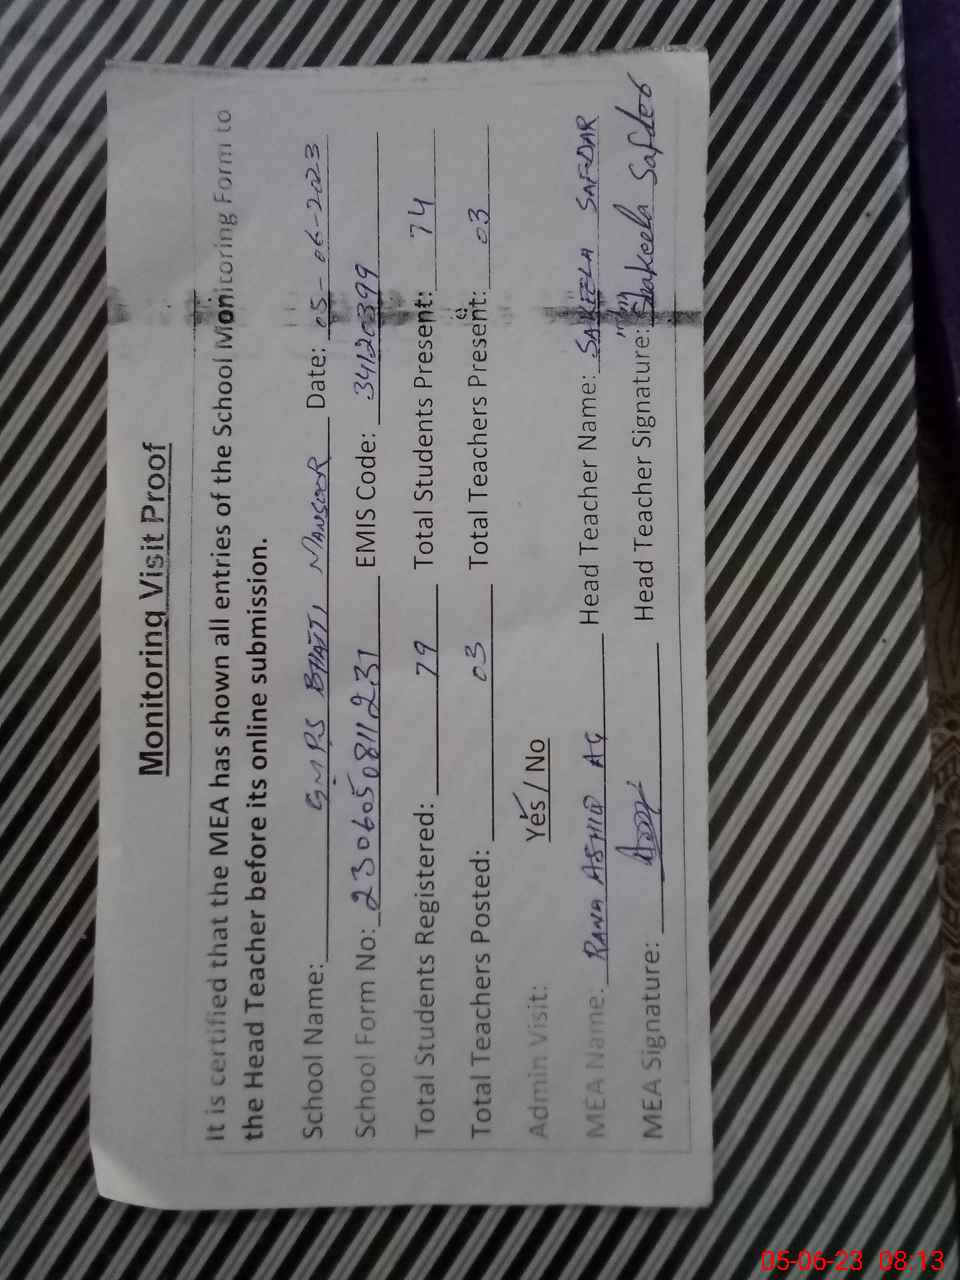 Monitoring Visit Proof
It is certified that the MEA has shown all entries of the School Monitoring Form to
the Head Teacher before its online submission.
School Name: GMPS BHATTI MANSOOR Date: 05-06-2023
School Form No: 2306050811231 EMIS Code: 34120399
Total Students Registered: 79 Total Students Present: 74
Total Teachers Posted: 03 Total Teachers Present: 03
Admin Visit: Yes / No
MEA Name: RANA ASHIQ AG Head Teacher Name: SAKEELA SAFDAR
MEA Signature: Head Teacher Signature: Shakeela Safder
05-06-23 08:13